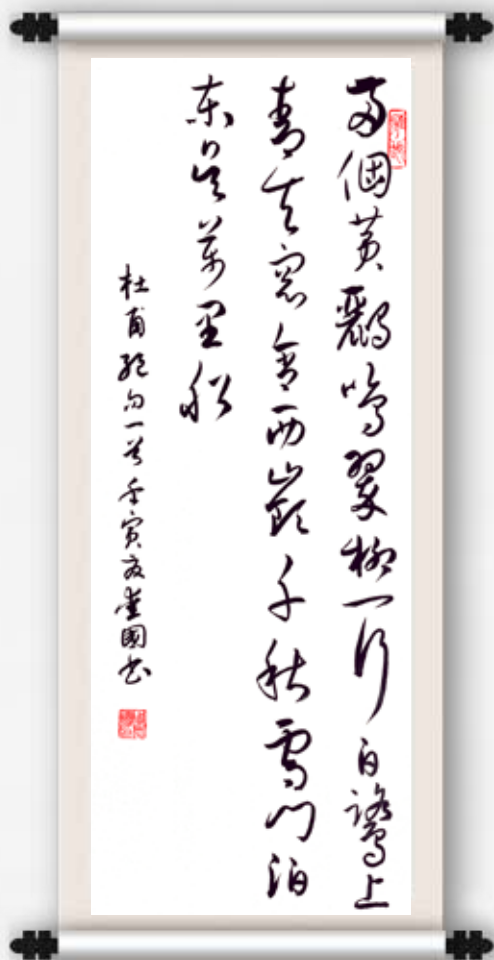 兩個黄鸝鳴翠柳一行白鷺上
青天窓含西嶺千秋雪門泊
东吴萬里船
杜甫絶句一首壬寅夏國书